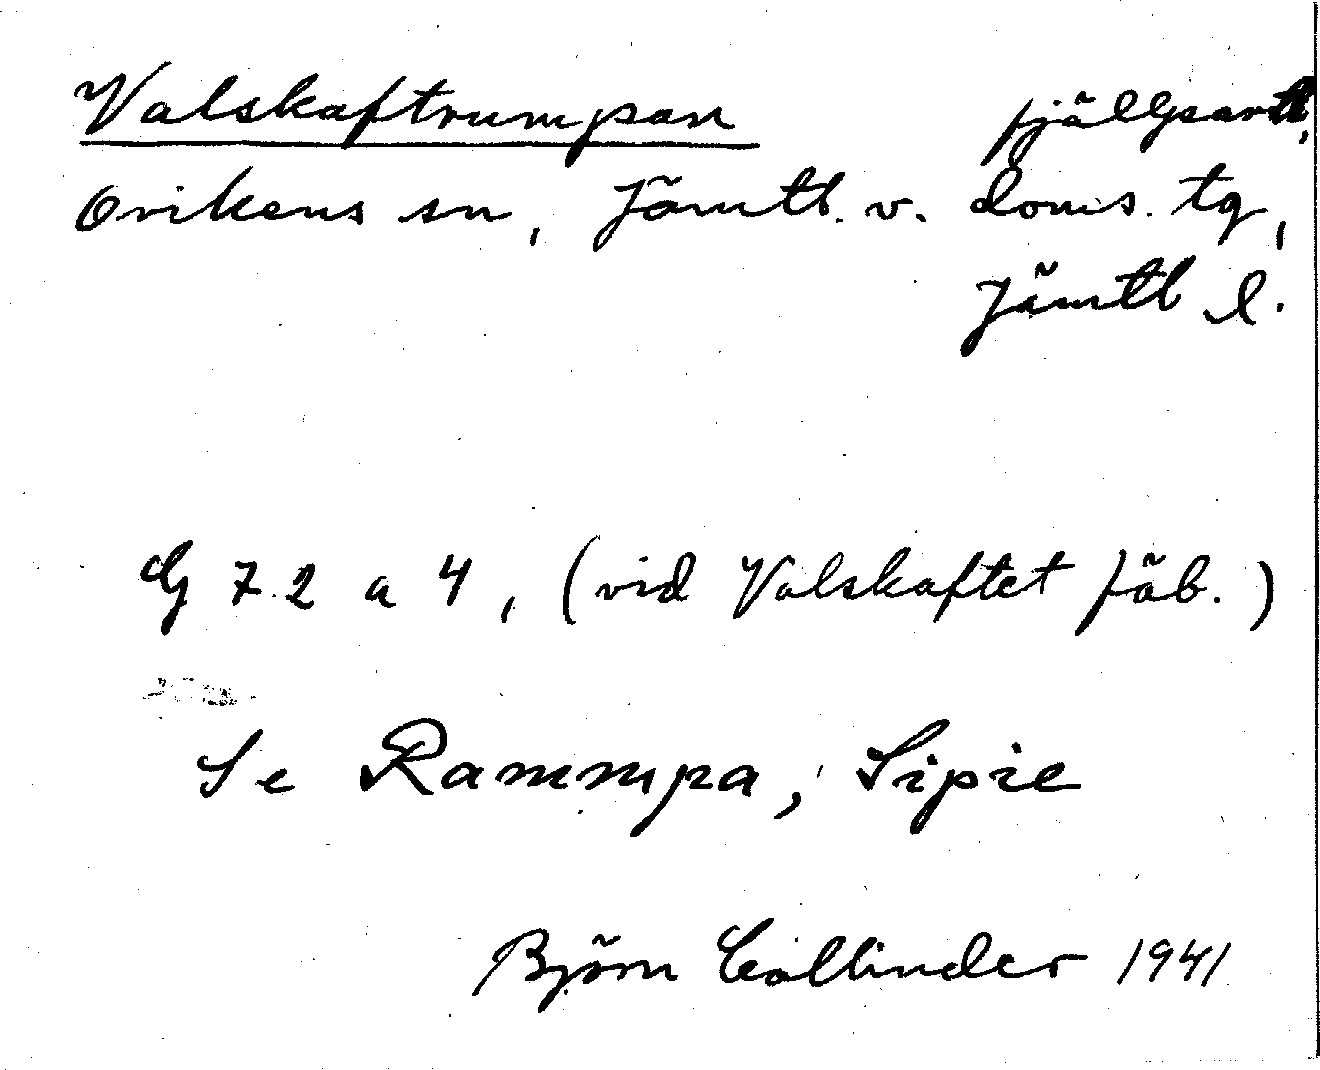 Valskaftrumpan fjällparti,
Ovikens sn, Jämtl. v. doms. tg,
Jämtl l.
G 72 a 4, (vid Valskaftet fäb.)
Se Rammpa, Sipie
Björn Collinder 1941